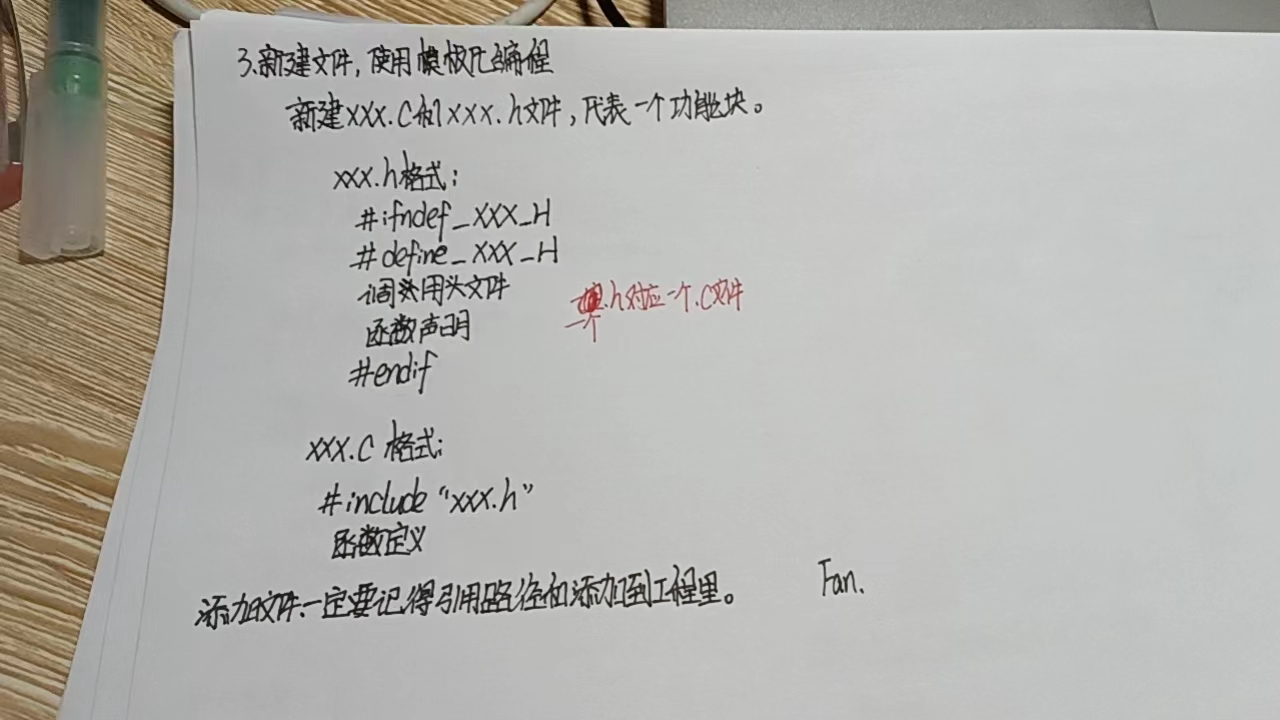 3.新建文件,使用模板化编程
新建xxx.c和xxx.h文件,代表一个功能块。
xxx.h格式:
#ifndef_XXX_H
#define_XXX_H
调用头文件
一个.h对应一个.c文件
函数声明
#endif
xxx.c 格式:
#include "xxx.h"
函数定义
添加文件一定要记得引用路径和添加到工程里。
Fan.